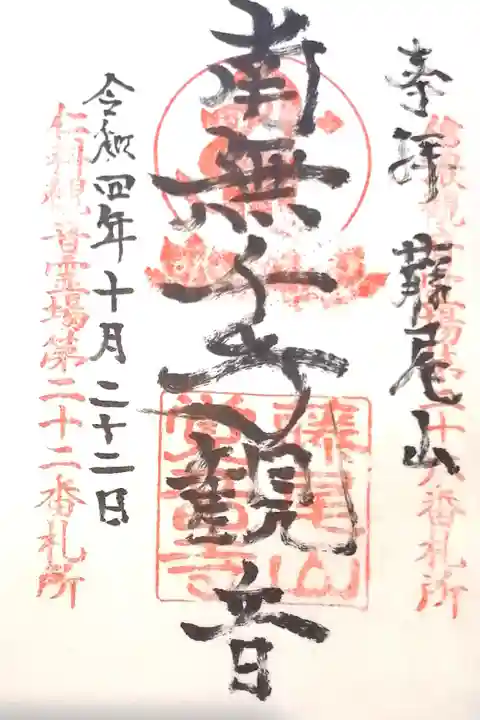 奉拝 藤尾山
観音霊場第二十 番札所
南無千手観音
藤尾山
覚音寺
令和四年十月二十二日
仁科観音霊場第二十二番札所